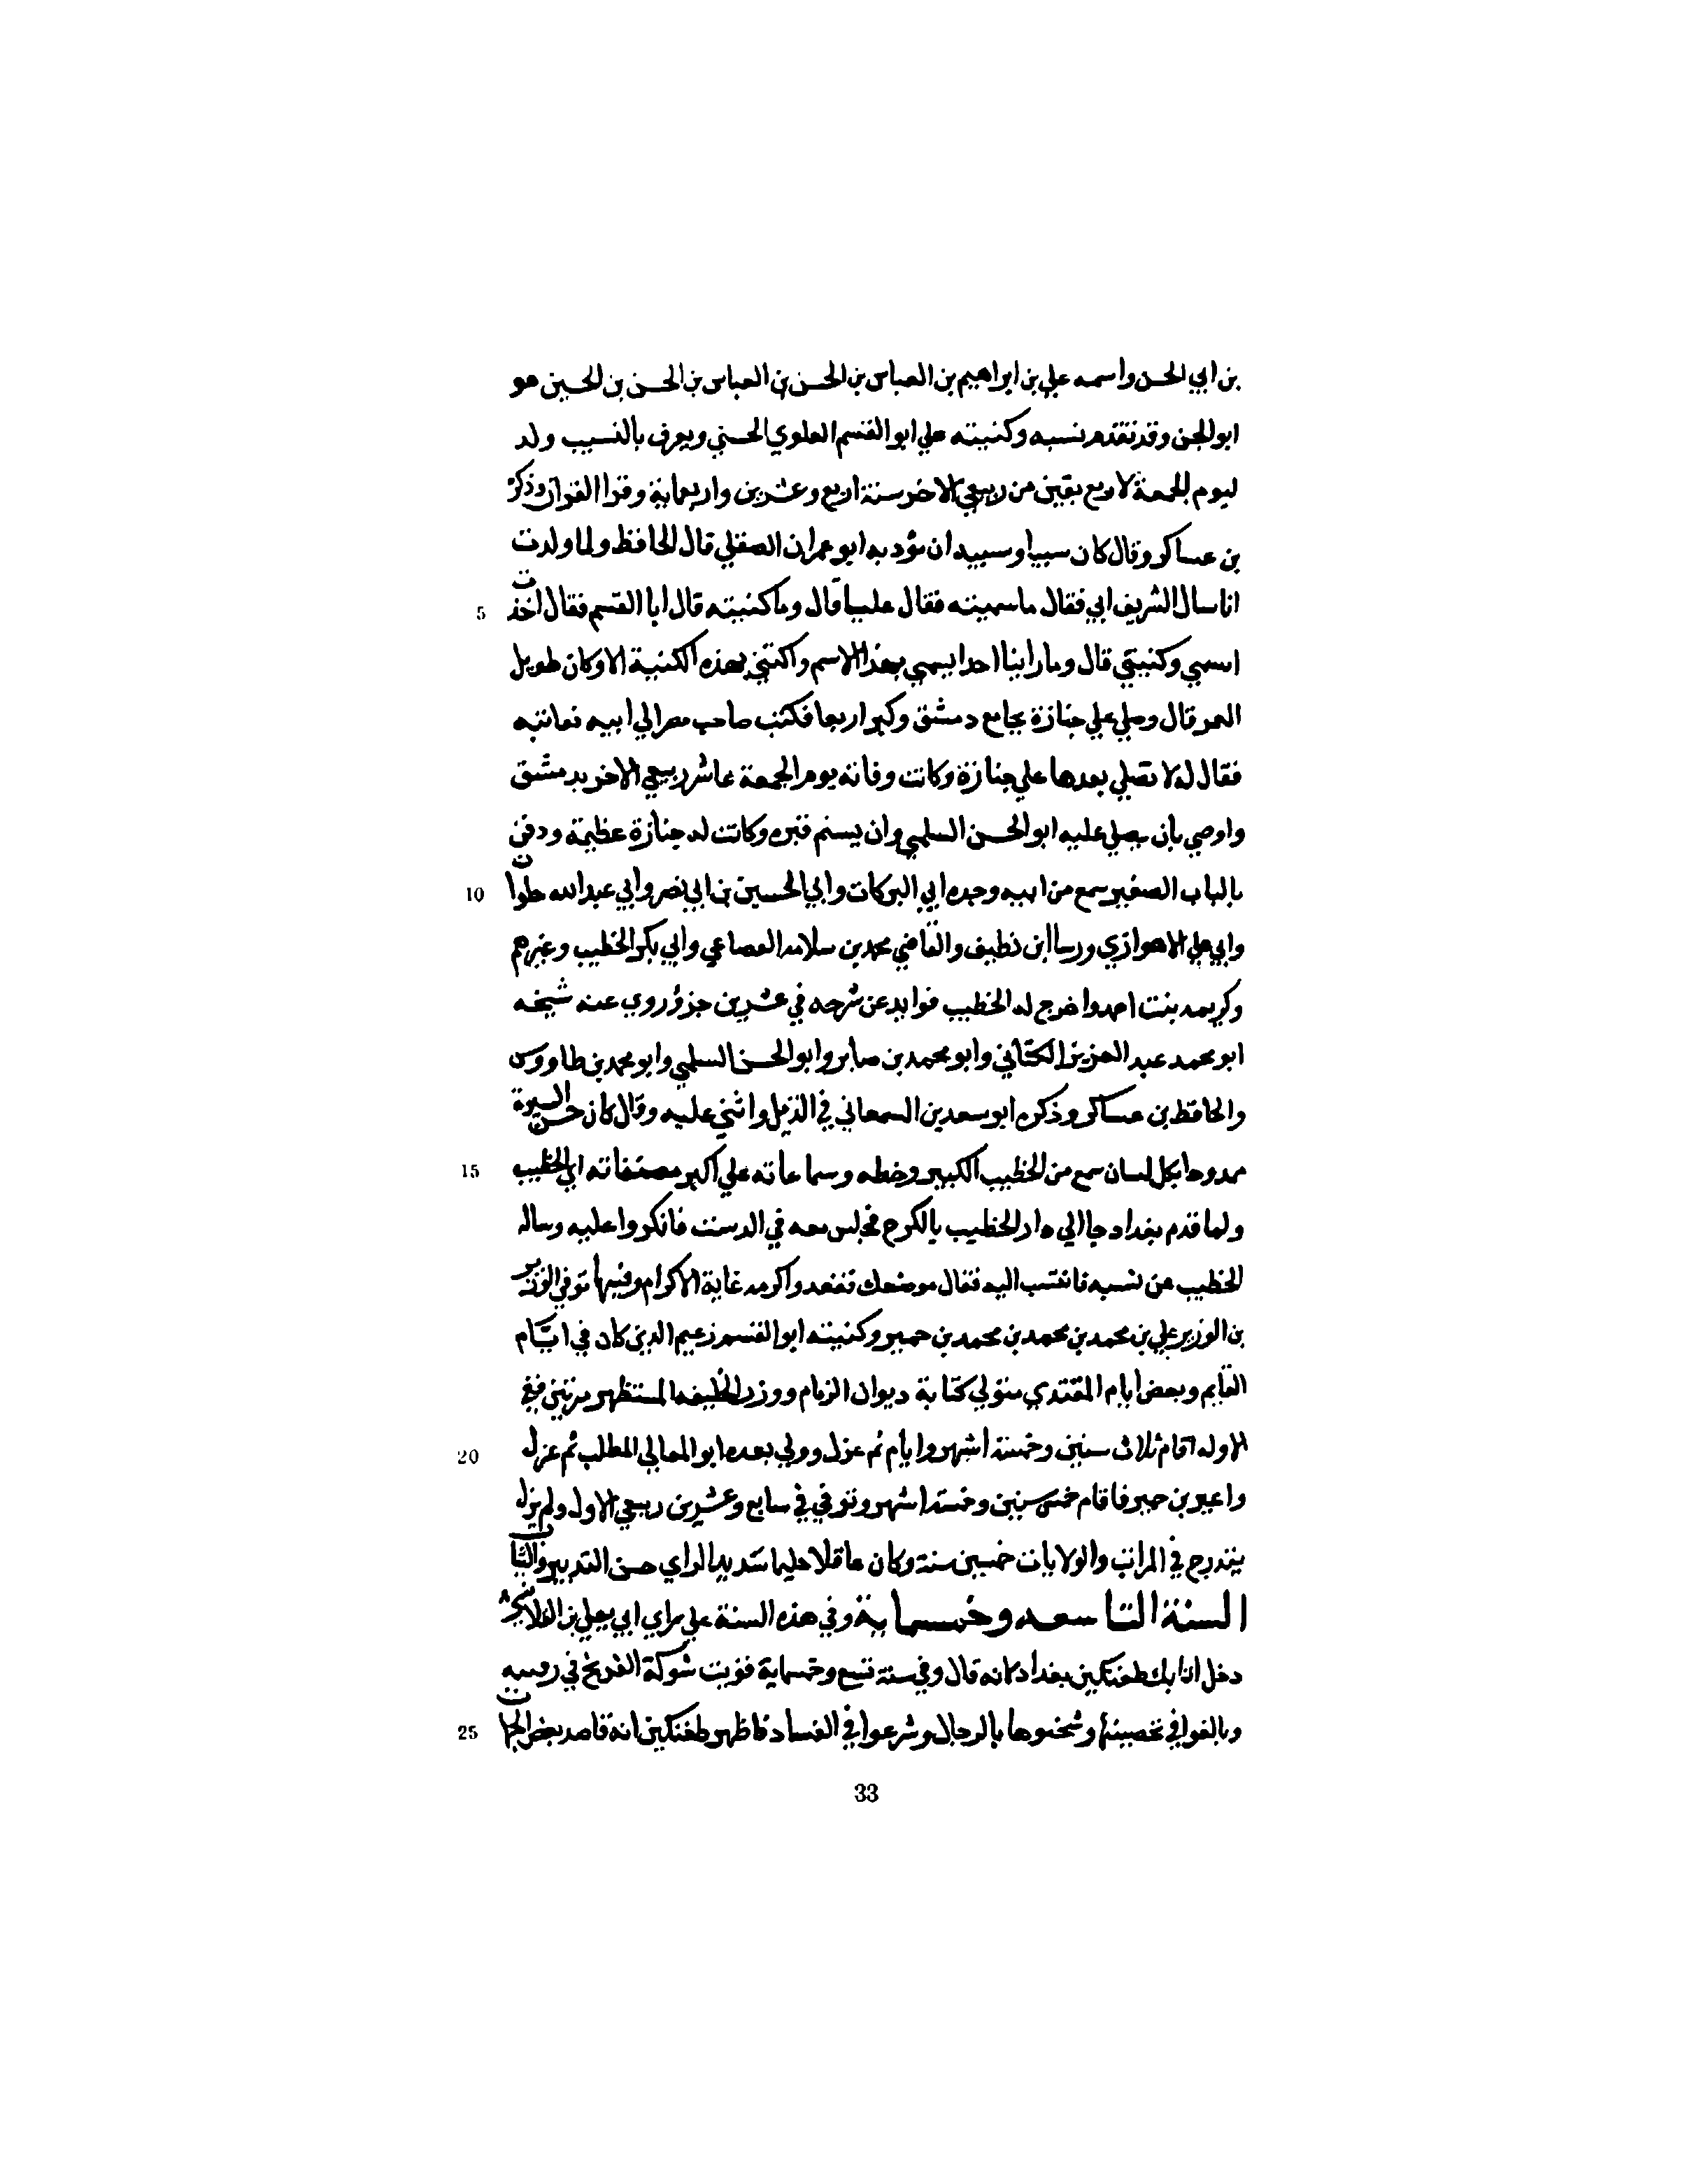 بن ابي الحسن واسمه علي بن ابراهيم بن العباس بن الحسن بن العباس بن الحسن بن الحسين هو
ابو الجن وقد تقدم نسبه وكنيته علي ابو القسم العلوي الحسني ويعرف بالنسيب ولد
ليوم الجمعة لاربع بقين من ربيع الاخر سنة اربع وعشرين واربعماية وقرا القران وذكر
بن عساكر وقال كان سببا وسبيدان مؤدبه ابو عمران الصقلي قال الحافظ ولما ولدت
5 انا سال الشريف ابي فقال ما سميته فقال عليا قال وما كنيته قال ابا القسم فقال اخذت
اسمي وكنيتي قال وما راينا احدا يسمي بهذا الاسم واكتني بهذه الكنية الا وكان طويل
العمر قال وصلي علي جنازة بجامع دمشق وكبر اربعا فكتب صاحب مصر الي ابيه نعاتبه
فقال له لا تصلي بعدها علي جنازة وكانت وفاته يوم الجمعة عاشر ربيع الاخر بدمشق
واوصي بان يصلي عليه ابو الحسن السلمي وان يسنم قبره وكانت له جنازة عظيمة ودفن
10 بالباب الصغير سمع من ابيه وجده ابي البركات وابي الحسين بن ابي نصر وابي عبد الله حلوان
وابي علي الاهوازي ورسا ابن نظيف والقاضي محمد بن سلامه القضاعي وابي بكر الخطيب وغيرهم
وكريمه بنت احمد واخرج له الخطيب فوايد عن شرحه في عشرين جزؤ روي عنه شيخه
ابو محمد عبد العزيز الكتاني وابو محمد بن صابر وابو الحسن السلمي وابو محمد بن طاووس
والحافظ بن عساكر وذكره ابو سعد بن السمعاني في الذيل واثني عليه وقال كان حسن السيرة
15 ممدوحا بكل لسان سمع من الخطيب الكبير وخطه وسماعاته علي اكبر مصنفاته ابي الخطيب
ولما قدم بغداد جا الي دار الخطيب بالكرخ فجلس معه في الدست فانكروا عليه وساله
الخطيب عن نسبه فانتسب اليه فقال موضعك تقعد واكرمه غاية الاكرام وفيها توفي الوزير
بن الوزير علي بن محمد بن محمد بن محمد بن جهير وكنيته ابو القسم زعيم الدين كان في ايام
القايم وبعض ايام المقتدي متولي كتابة ديوان الزمام ووزر للخليفه المستظهر مرتين ففي
20 الاوله اقام ثلاث سنين وخمسة اشهر وايام ثم عزل وولي بعده ابو المعالي المطلب ثم عزل
واعيد بن جهير فاقام خمس سنين وخمسة اشهر وتوفي في سابع وعشرين ربيع الاول ولم يزل
يتدرج في المراتب والولايات خمسين سنة وكان عاقلا حليما سديد الراي حسن التدبير والثبات
السنة التاسعه وخمسماية وفي هذه السنة علي راي ابي يعلي بن القلانسي
دخل اتابك طغتكين بغداد لانه قال وفي سنة تسع وخمساية قويت شوكة الفرنج في رفنيه
25 وبالغوا في تحصينها وشحنوها بالرجال وشرعوا في الفساد فاظهر طغتكين انه قاصد بعض الجهات
33